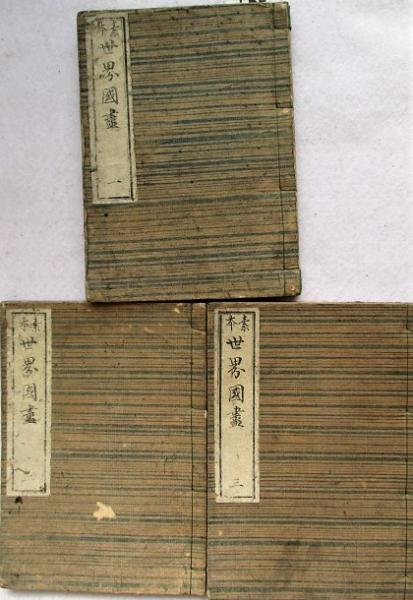 素本
世界國盡
一
素本
世界國盡
素本
世界國盡
三